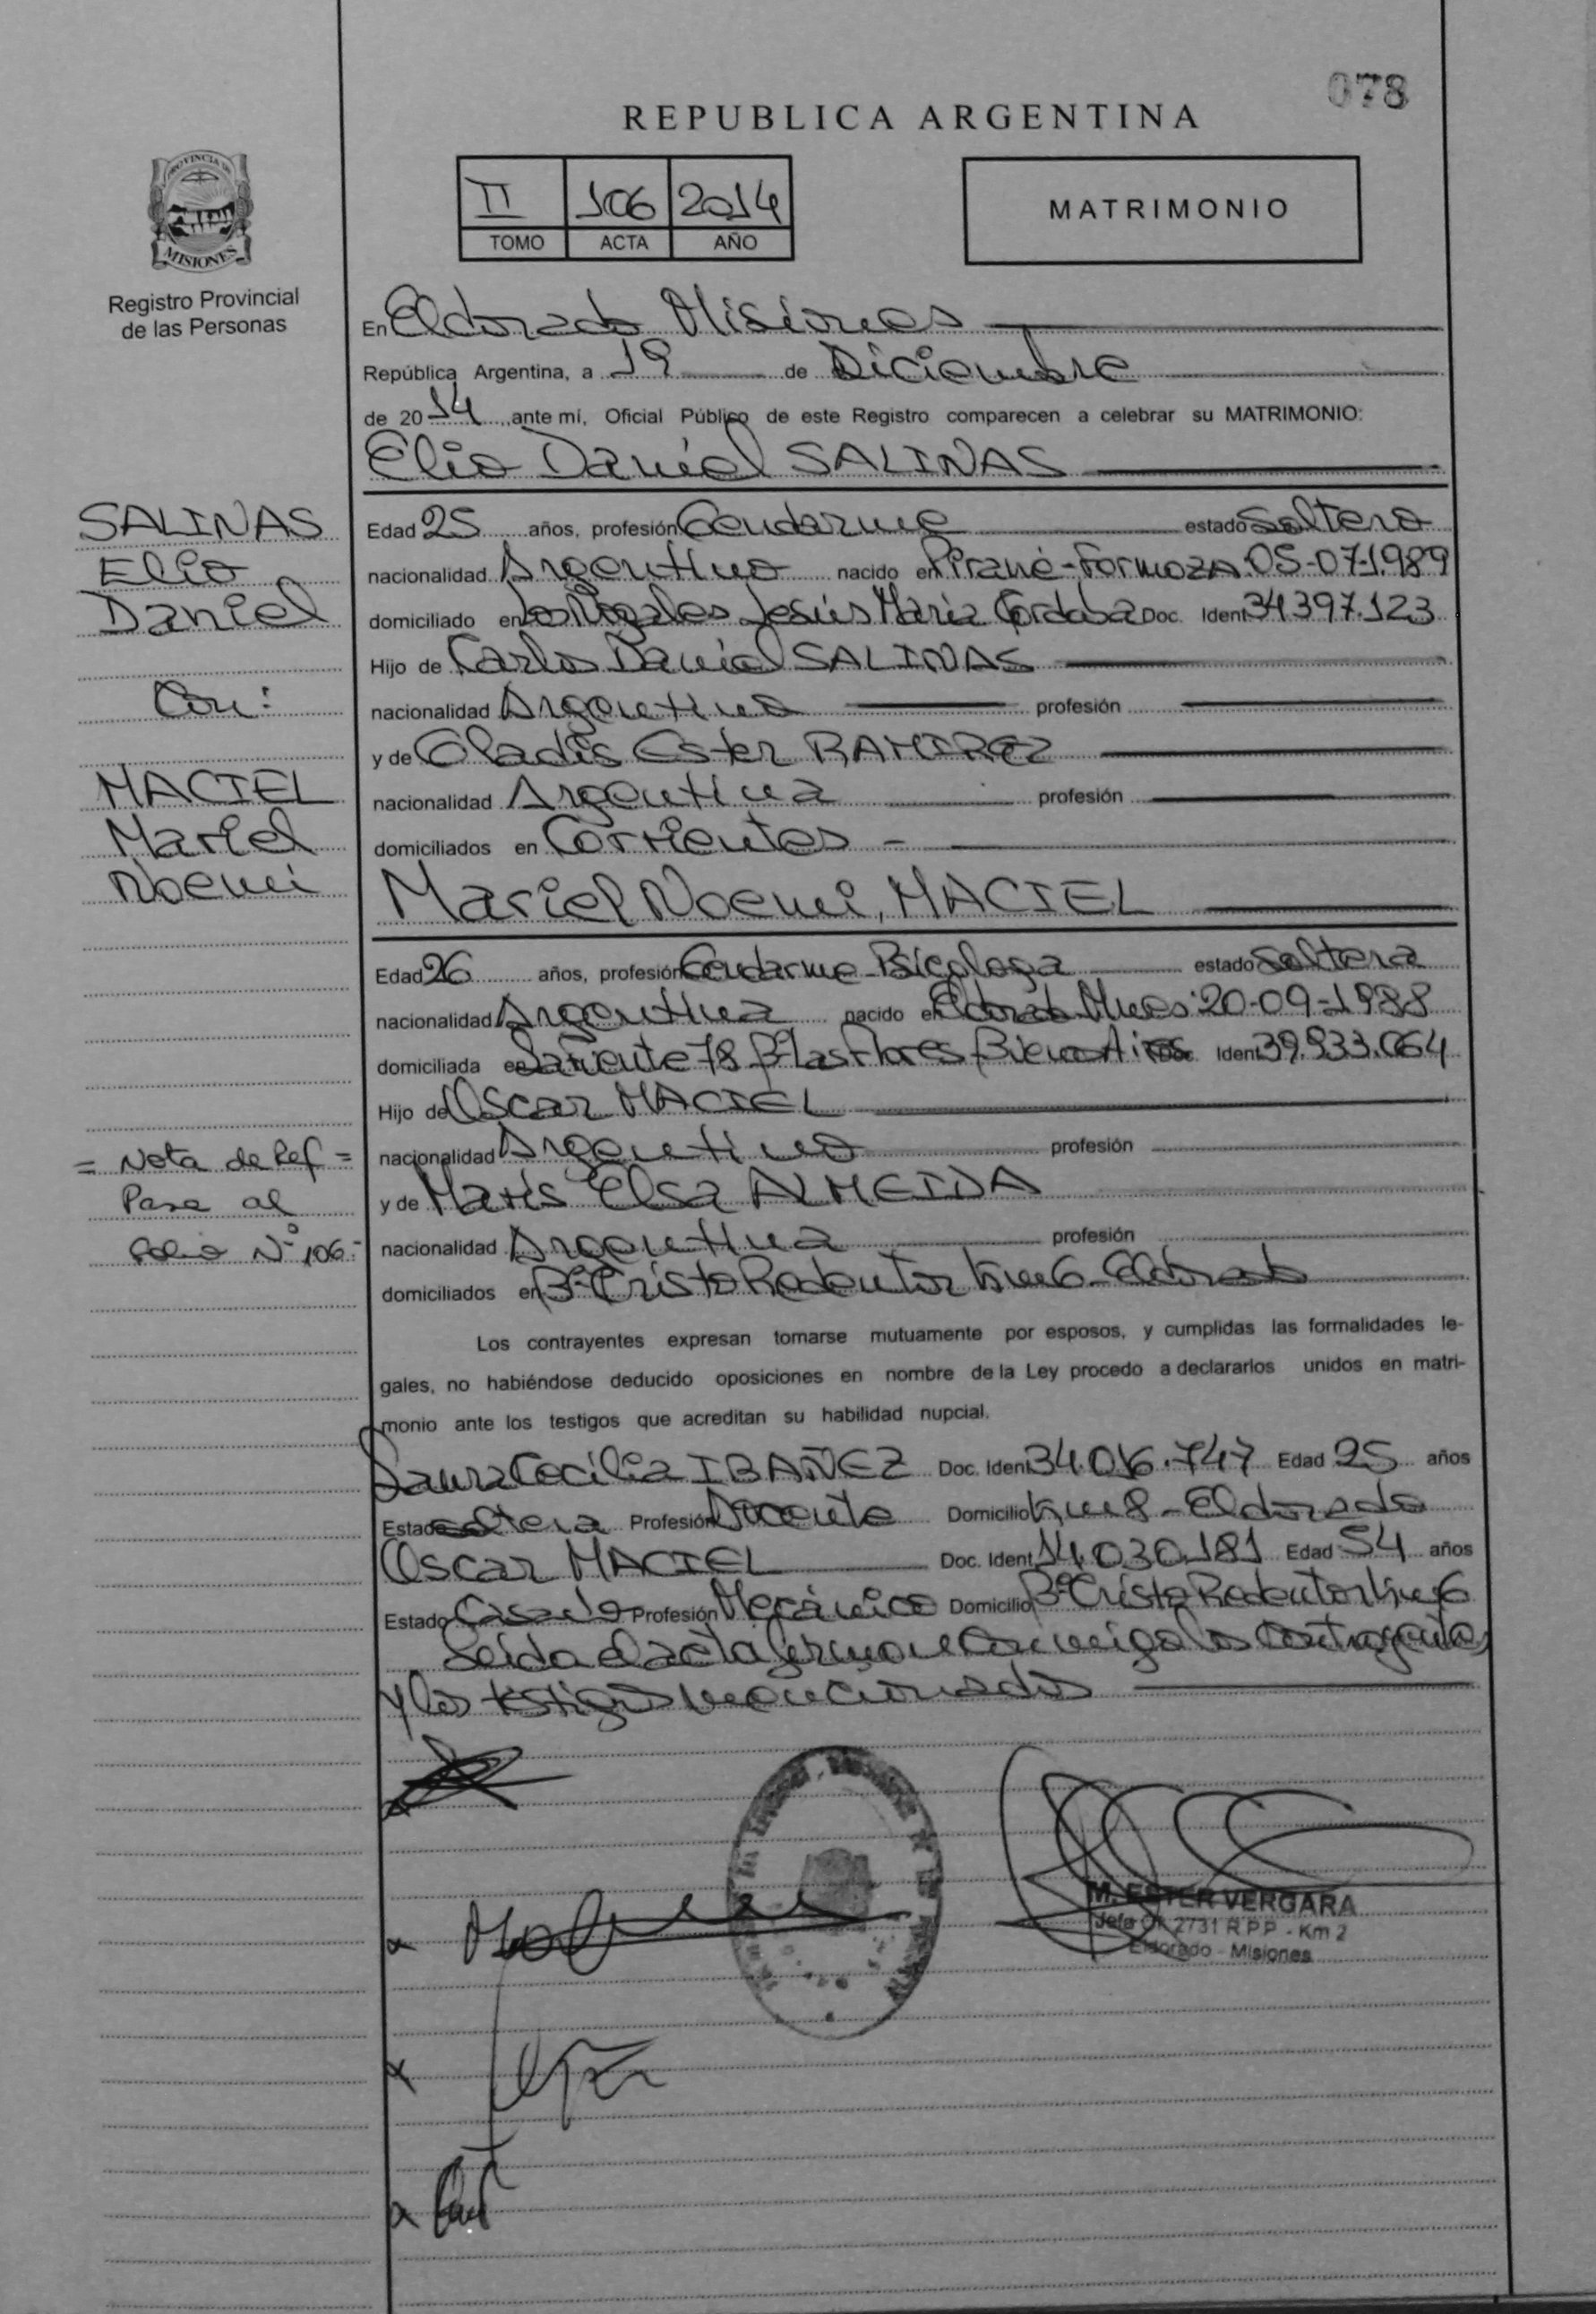 078
REPUBLICA ARGENTINA
II 106 2014
TOMO ACTA AÑO
MATRIMONIO
PROVINCIA DE
MISIONES
Registro Provincial
de las Personas
En Eldorado Misiones
República Argentina, a 19 de Diciembre
de 2014 ante mí, Oficial Público de este Registro comparecen a celebrar su MATRIMONIO:
Elio Daniel SALINAS
SALINAS
Elio
Daniel
Con:
MACIEL
Mariel
Noemi
Edad 25 años, profesión Gendarme estado Soltero
nacionalidad Argentino nacido en Pirané-Formoza. 05-07-1989
domiciliado en Los Nogales Jesús María Córdoba Doc. Ident 34397.123
Hijo de Carlos Daniel SALINAS
nacionalidad Argentino profesión
y de Gladis Ester RAMIREZ
nacionalidad Argentina profesión
domiciliados en Corrientes -
Mariel Noemi, MACIEL
Edad 26 años, profesión Gendarme Psicologa estado Soltera
nacionalidad Argentina nacido en Eldorado Mnes 20-09-1988
domiciliada en 78 Bº Las Flores Buenos Aires Doc. Ident
Hijo de Oscar MACIEL
nacionalidad Argentino profesión
y de Maris Elsa ALMEIDA
nacionalidad Argentina profesión
domiciliados en Bº Cristo Redentor km 6 - Eldorado
= Nota de Ref =
Pasa al
folio Nº 106.-
Los contrayentes expresan tomarse mutuamente por esposos, y cumplidas las formalidades le-
gales, no habiéndose deducido oposiciones en nombre de la Ley procedo a declararlos unidos en matri-
monio ante los testigos que acreditan su habilidad nupcial.
Laura Cecilia IBAÑEZ Doc. Ident Edad 25 años
Estado soltera Profesión Docente Domicilio km 8 - Eldorado
Oscar MACIEL Doc. Ident 14.030.181 Edad 54 años
Estado Casado Profesión Mecánico Domicilio Bº Cristo Redentor km 6
Leida el acta firman conmigo los contrayentes
y los testigos mencionados
M. ESTER VERGARA
Jefe Of. 2731 R.P.P - Km 2
Eldorado - Misiones